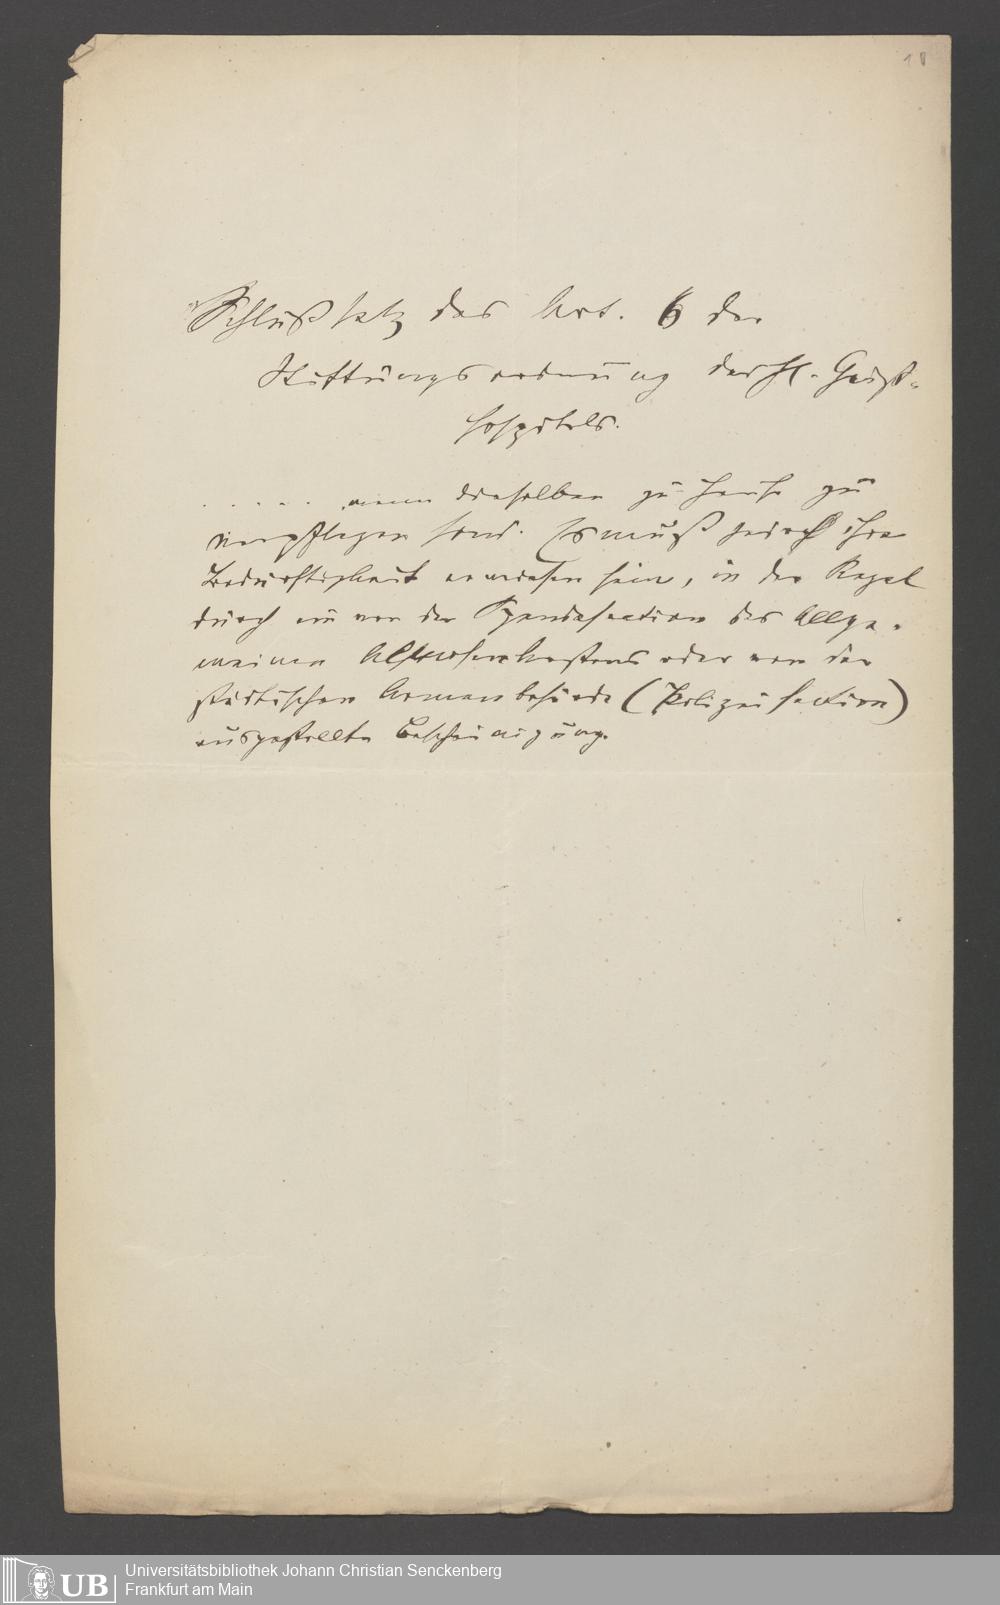 18
Schlußsatz des Art. 6 der
Stiftungsordnung des H. Geist-
hospitals.
. . . . . wenn dieselben zu Hause zu
verpflegen sind. Es muß jedoch ihre
Bedürftigkeit erwiesen sein, in der Regel
durch ein von der Spendesection des Allge-
meinen Almosenkastens oder von der
städtischen Armenbehörde (Polizei section)
ausgestellte Bescheinigung.
Universitätsbibliothek Johann Christian Senckenberg
Frankfurt am Main
UB